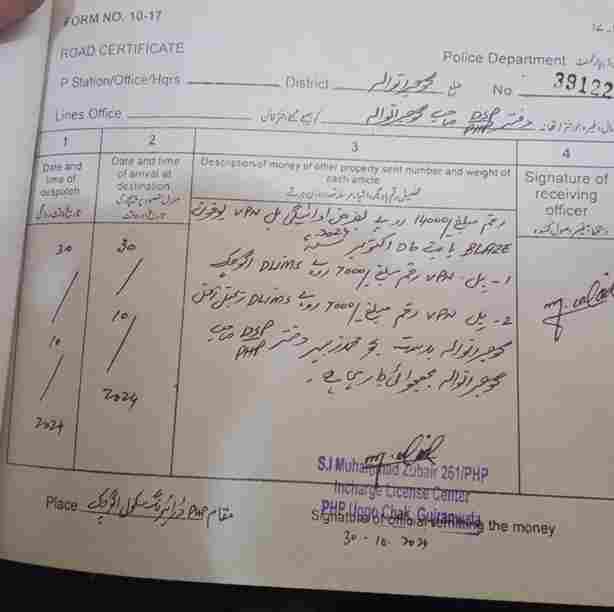 FORM NO. 10-17
ROAD CERTIFICATE
Police Department
P Station/Office/Hqrs District گوجرانوالہ ضلع No 39122
Lines Office دفتر DSP PHP صاحب گوجرانوالہ
1 2 3 4
Date and time of despatch
Date and time of arrival at destination
Description of money of other property sent number and weight of each article
Signature of receiving officer
رقم مبلغ /14000 روپے بغرض ادائیگی بل VPN یوفون
BLAZE بابت ماہ اکتوبر 2024
1- بل VPN رقم مبلغ /7000 روپے DLIMS اگوچک
2- بل VPN رقم مبلغ /7000 روپے DLIMS
گوجرانوالہ بدست محمد زبیر دفتر DSP PHP صاحب
گوجرانوالہ بھجوائی جا رہی ہے۔
30 30
10 10
2024 2024
S.I Muhammad Zubair 261/PHP
Incharge License Center
PHP Uggo Chak, Gujranwala
Place مقام PHP ڈرائیونگ سکول اگوچک
Signature of official the money
30-10-2024